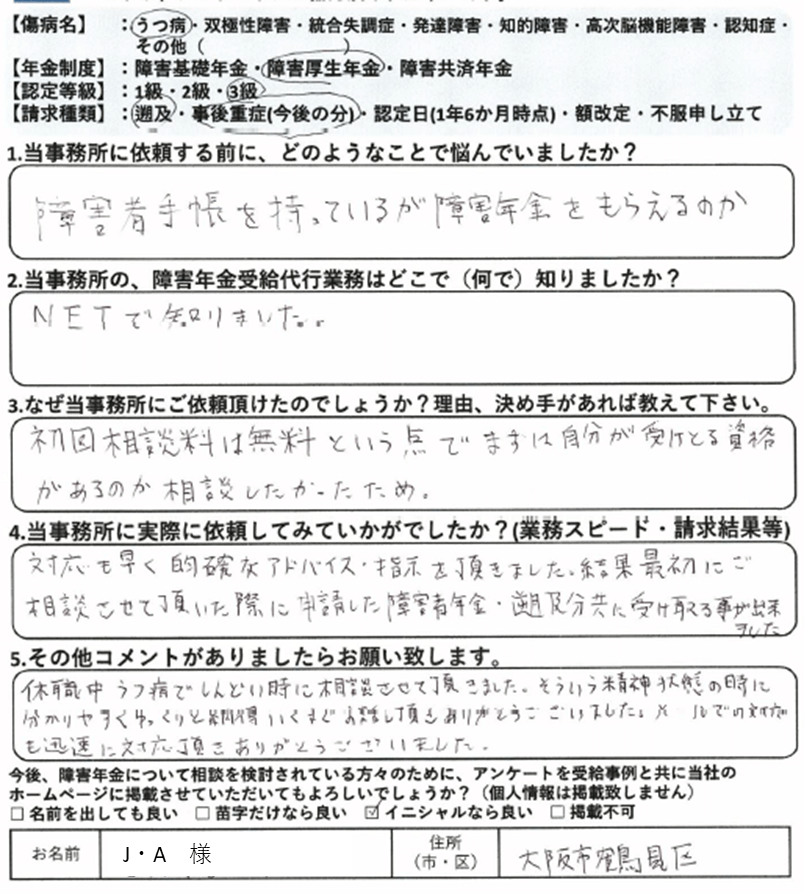 【傷病名】：うつ病・双極性障害・統合失調症・発達障害・知的障害・高次脳機能障害・認知症・
その他（　　　　　　　　）
【年金制度】：障害基礎年金・障害厚生年金・障害共済年金
【認定等級】：1級・2級・3級
【請求種類】：遡及・事後重症(今後の分)・認定日(1年6か月時点)・額改定・不服申し立て
1.当事務所に依頼する前に、どのようなことで悩んでいましたか？
障害者手帳を持っているが障害年金をもらえるのか
2.当事務所の、障害年金受給代行業務はどこで（何で）知りましたか？
NETで知りました。
3.なぜ当事務所にご依頼頂けたのでしょうか？理由、決め手があれば教えて下さい。
初回相談料は無料という点でまずは自分が受けとる資格
があるのか相談したかったため。
4.当事務所に実際に依頼してみていかがでしたか？(業務スピード・請求結果等)
対応も早く的確なアドバイス・指示を頂きました。結果最初にご
相談させて頂いた際に申請した障害者年金・遡及分共に受け取る事が出来
ました
5.その他コメントがありましたらお願い致します。
休職中うつ病でしんどい時に相談させて頂きました。そういう精神状態の時に
分かりやすくゆっくりと納得いくまでお話し頂きありがとうございました。メールでの対応
も迅速に対応頂きありがとうございました。
今後、障害年金について相談を検討されている方々のために、アンケートを受給事例と共に当社の
ホームページに掲載させていただいてもよろしいでしょうか？（個人情報は掲載致しません）
□ 名前を出しても良い　□ 苗字だけなら良い　☑ イニシャルなら良い　□ 掲載不可
お名前　J・A　様　住所（市・区）　大阪市鶴見区